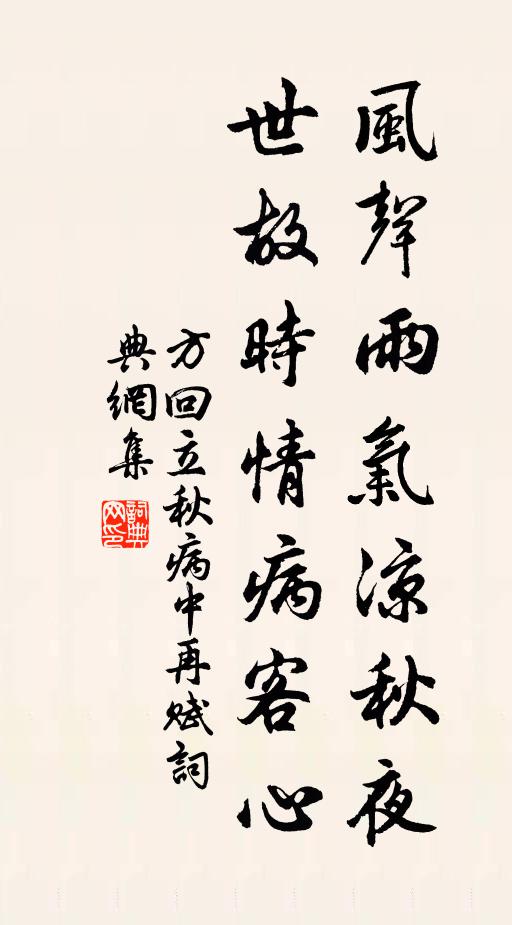 風聲雨氣凉秋夜
世故時情病客心
方回立秋病中再赋詞
典網集
詞典
网印